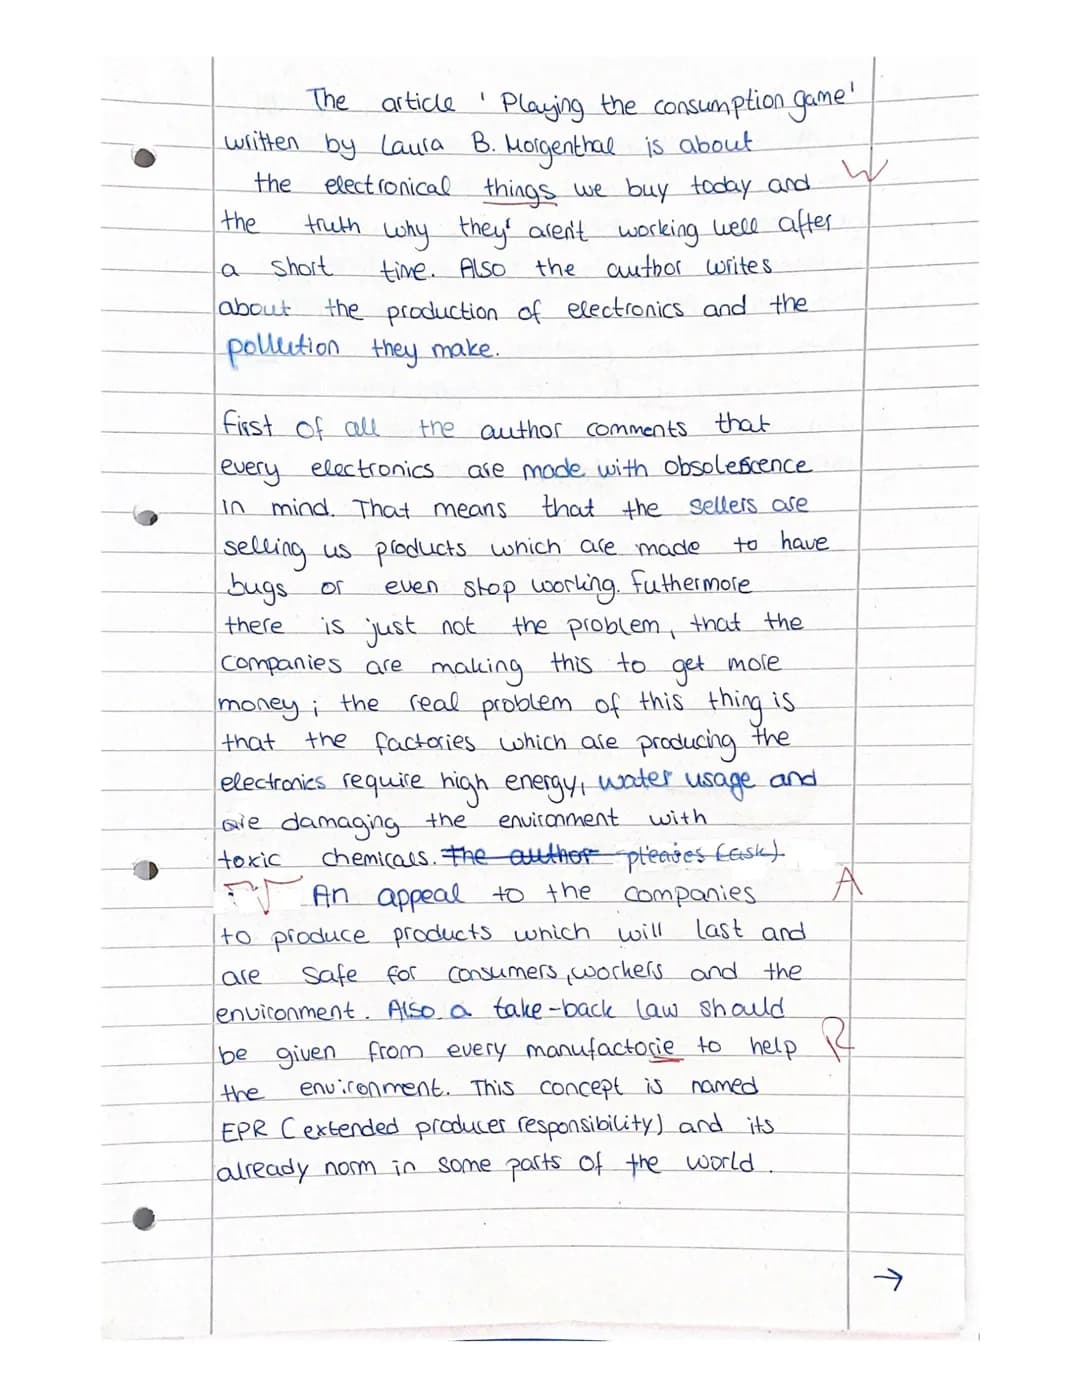 The article 'Playing the consumption game'
written by Laura B. Morgenthal is about
the electronical things we buy today and W
the truth why they' aren't working well after
a short time. Also the author writes
about the production of electronics and the
pollution they make.
First of all the author comments that
every electronics are made with obsolescence
in mind. That means that the sellers are
selling us products which are made to have
bugs or even stop working. Futhermore
there is just not the problem, that the
companies are making this to get more
money; the real problem of this thing is
that the factories which are producing the
electronics require high energy, water usage and
are damaging the environment with
toxic chemicals. The author pleases (ask).
An appeal to the companies A
to produce products which will last and
are safe for consumers, workers and the
environment. Also a take-back law should
be given from every manufactorie to help R
the environment. This concept is named
EPR (extended producer responsibility) and its
already norm in some parts of the world.
→